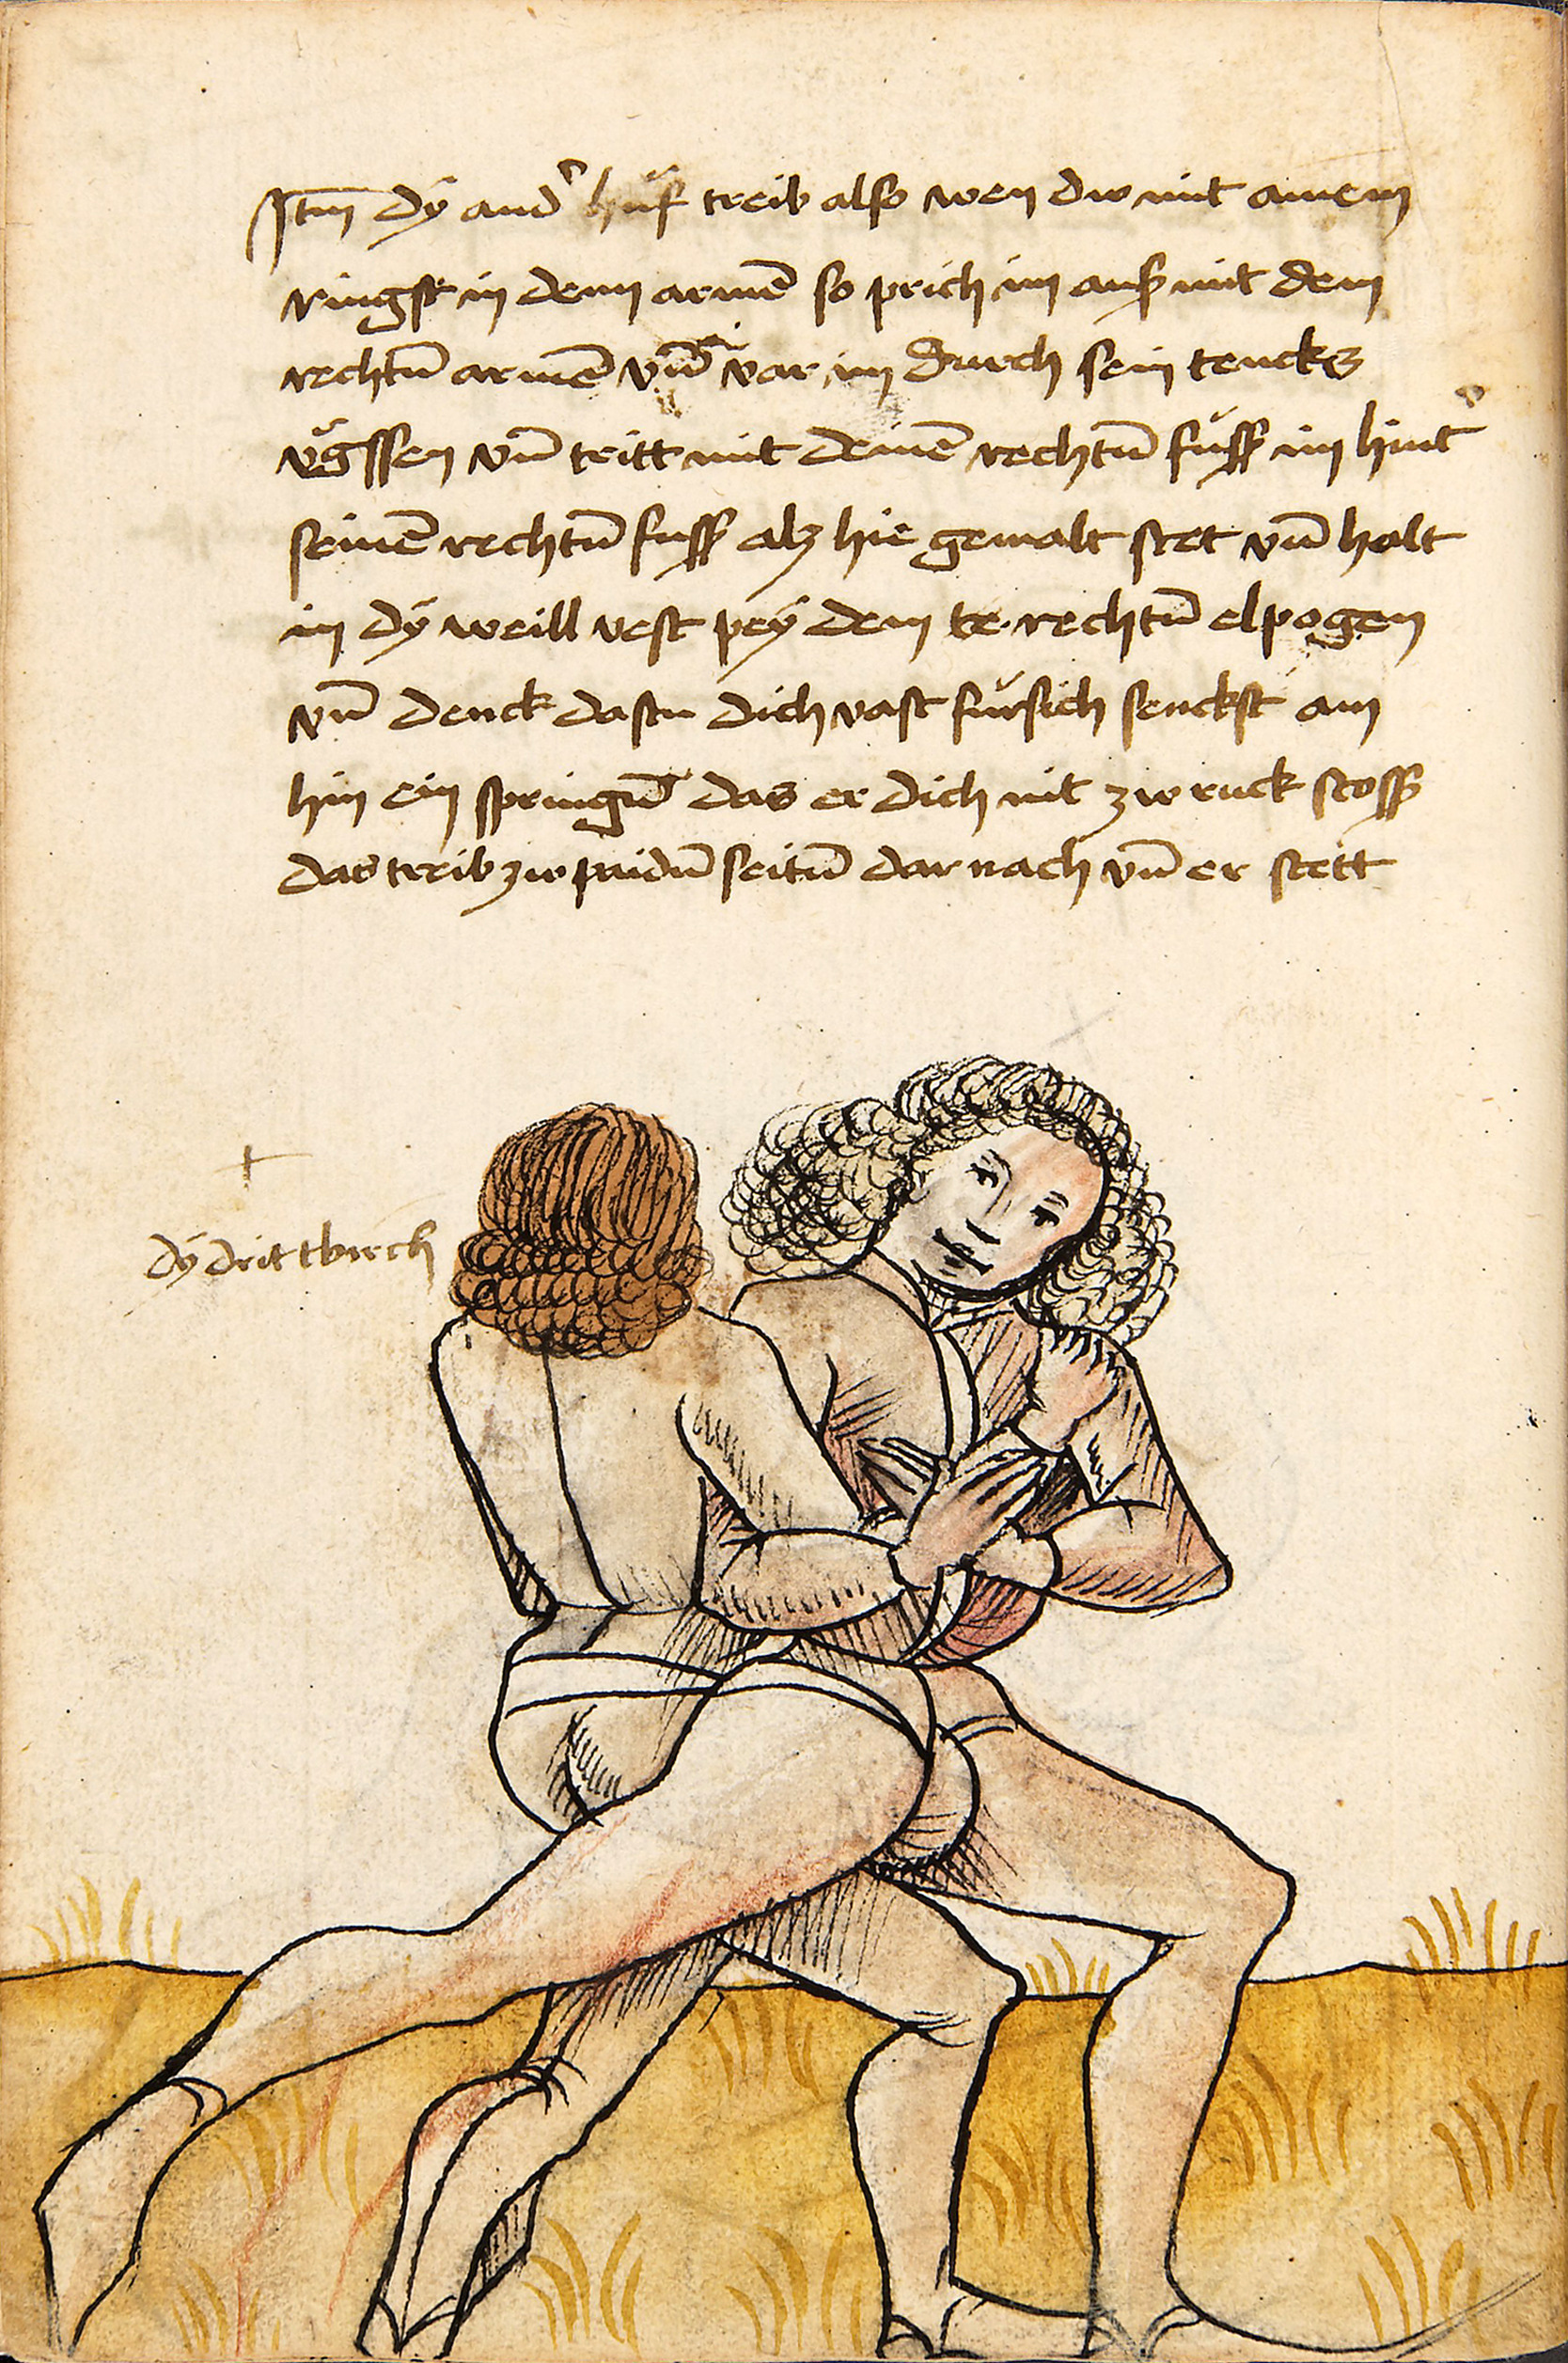 Itm dy and' hüf treib also wen dw mit ainem
ringst in denn armē so prich im auß mit dem
rechtū armē vn̄ var im durch sein tencks
vgssen vn̄ tritt mit deinē rechtū fuß im hint'
seinē rechtū fuß alz hie gemalt stet vn̄ halt
in dÿ weill vest peÿ dem te rechtū elpogen
vn̄ denck dastu dich vast fürsich senckst am
hin ein springū das er dich nit zw ruck stoß
das treib zw paidū seitū dar nach vn̄ er stett
dÿ dritt bruch